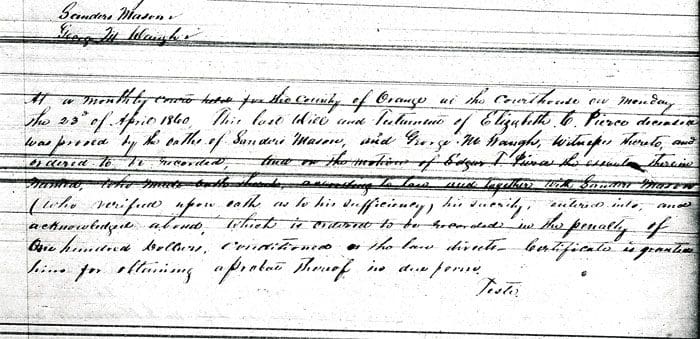 Sanders Mason
George M Waugh
At a monthly court held for the County of Orange at the Courthouse on Monday
the 23d of April 1860, This last Will and testament of Elizabeth C. Pierce deceased
was proved by the oaths of Sanders Mason, and George M Waugh, Witnesses thereto, and
ordered to be recorded, And on the motion of Edgar Pierce the executor therein
named, who made oath thereto, according to law and together with Sanders Mason
(who verified upon oath as to his sufficiency) his security, entered into, and
acknowledged a bond, which is ordered to be recorded in the penalty of
One hundred Dollars, Conditioned as the law directs Certificate is granted
him for obtaining a probate thereof in due form
Teste